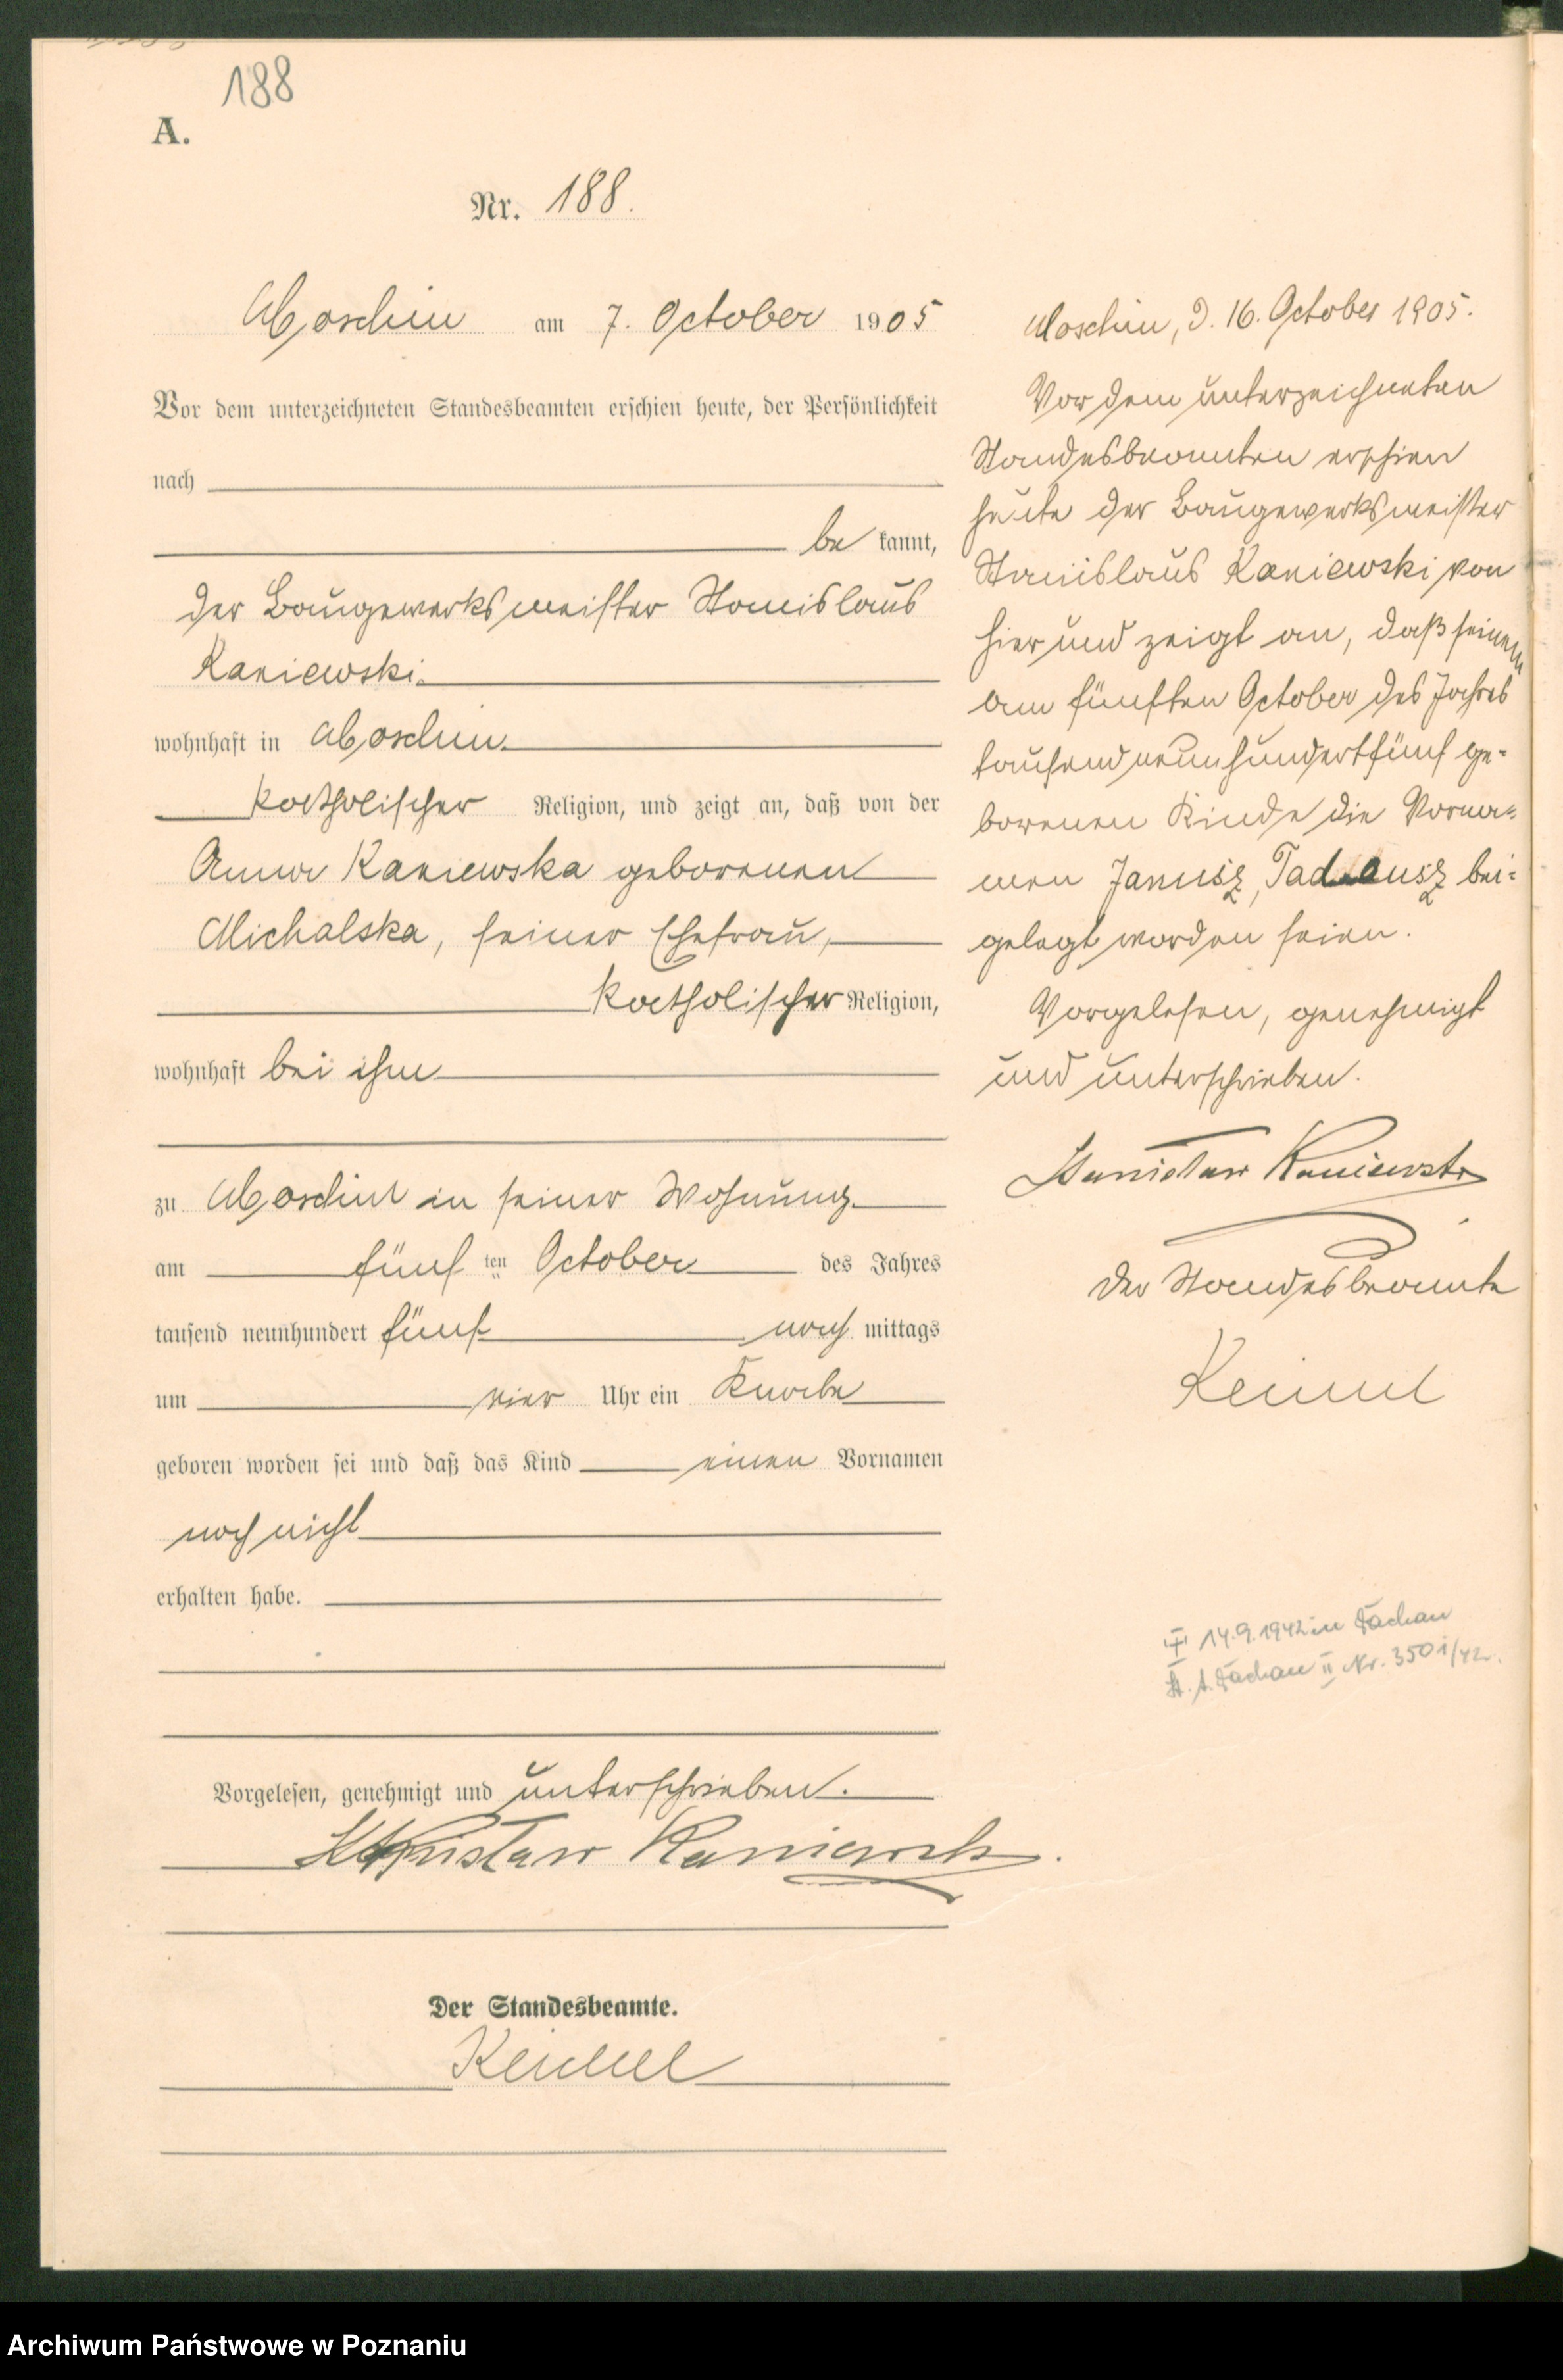 188
A.
Nr. 188.
Moschin am 7. October 1905
Vor dem unterzeichneten Standesbeamten erschien heute, der Persönlichkeit
nach
be kannt,
der Baugewerksmeister Stanislaus
Kaniewski
wohnhaft in Moschin
katholischer Religion, und zeigt an, daß von der
Anna Kaniewska geborenen
Michalska, seiner Ehefrau,
katholischer Religion,
wohnhaft bei ihm
zu Moschin in seiner Wohnung
am fünf ten October des Jahres
tausend neunhundert fünf nach mittags
um vier Uhr ein Knabe
geboren worden sei und daß das Kind einen Vornamen
noch nicht
erhalten habe.
Vorgelesen, genehmigt und unterschrieben.
Stanisław Kaniewski.
Der Standesbeamte.
Moschin, d. 16. October 1905.
Vor dem unterzeichneten
Standesbeamten erschien
heute der Baugewerksmeister
Stanislaus Kaniewski von
hier und zeigt an, daß seinem
am fünften October des Jahres
tausend neunhundertfünf ge-
borenen Kinde die Vorna-
men Janusz, Tadeusz bei-
gelegt worden seien.
Vorgelesen, genehmigt
und unterschrieben.
Stanisław Kaniewski
Der Standesbeamte
14.9.1942 in Dachau
St. A. Dachau II Nr. 3501/42.
Archiwum Państwowe w Poznaniu